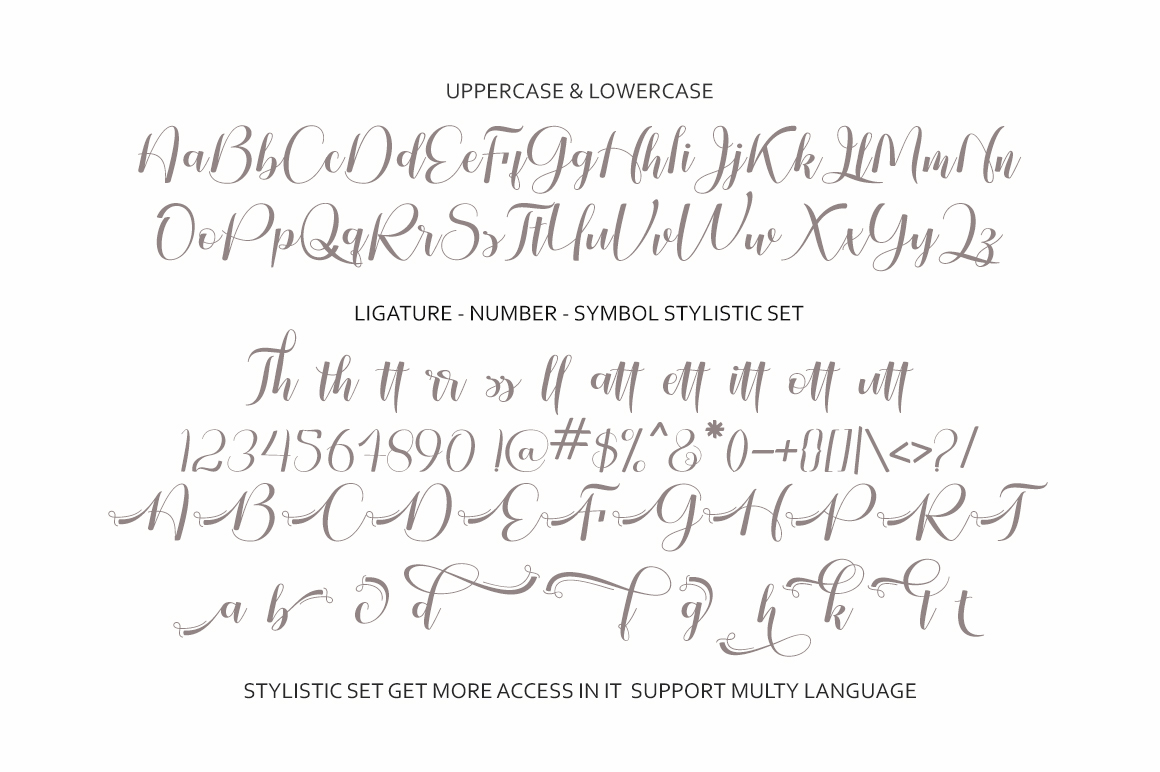 UPPERCASE & LOWERCASE
AaBbCcDdEeFfGgHhIiJjKkLlMmNn
OoPpQqRrSsTtUuVvWwXxYyZz
LIGATURE - NUMBER - SYMBOL STYLISTIC SET
Th th tt rr ss ll att ett itt ott utt
1234567890 !@#$%^&*()-+{}[]|\<>?/
ABCDEFGHPRT
a b c d f g h k l t
STYLISTIC SET GET MORE ACCESS IN IT SUPPORT MULTY LANGUAGE